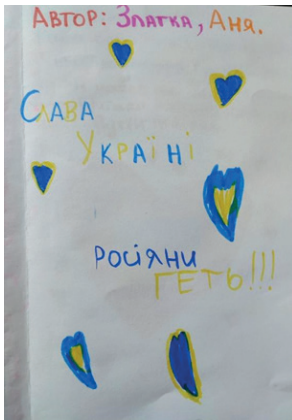 АВТОР: ЗЛАТКА, АНЯ.
СЛАВА
УКРАЇНІ
РОСІЯНИ
ГЕТЬ!!!